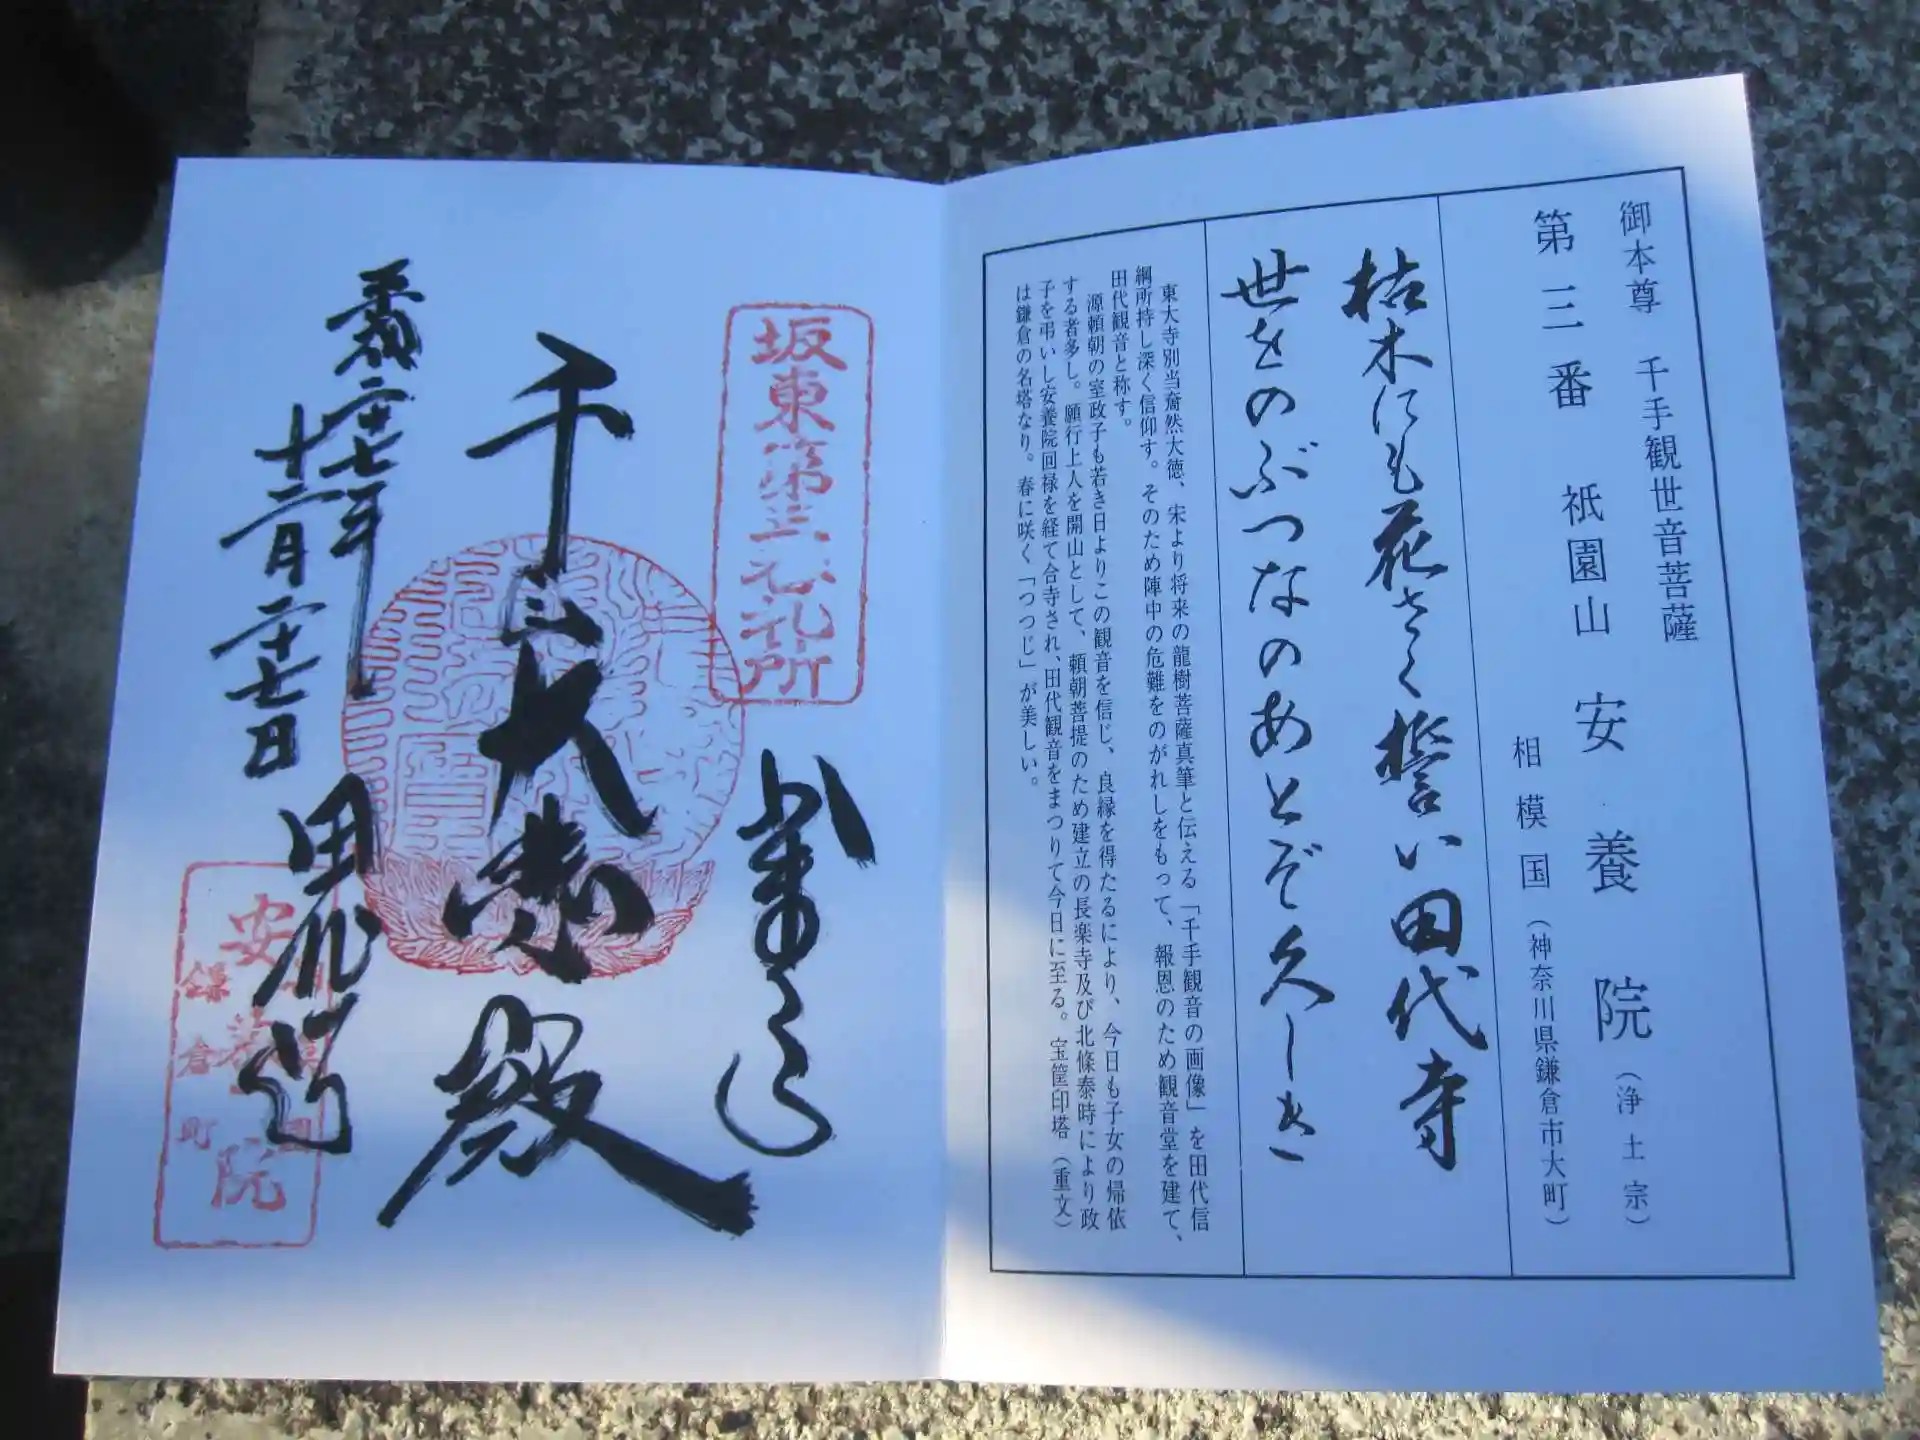 御本尊 千手観世音菩薩
第三番 祇園山 安養院（浄土宗）
相模国（神奈川県鎌倉市大町）
枯木にも花さく誓い田代寺
世をのぶつなのあとぞ久しき
東大寺別当奝然大徳、宋より将来の龍樹菩薩真筆と伝える「千手観音の画像」を田代信
綱所持し深く信仰す。そのため陣中の危難をのがれしをもって、報恩のため観音堂を建て、
田代観音と称す。
源頼朝の室政子も若き日よりこの観音を信じ、良縁を得たるにより、今日も子女の帰依
する者多し。願行上人を開山として、頼朝菩提のため建立の長楽寺及び北條泰時により政
子を弔いし安養院回禄を経て合寺され、田代観音をまつりて今日に至る。宝筐印塔（重文）
は鎌倉の名塔なり。春に咲く「つつじ」が美しい。
坂東第三番札所
千手大悲殿
平成二十七年
十二月二十七日
田代寺
安養院
鎌倉町